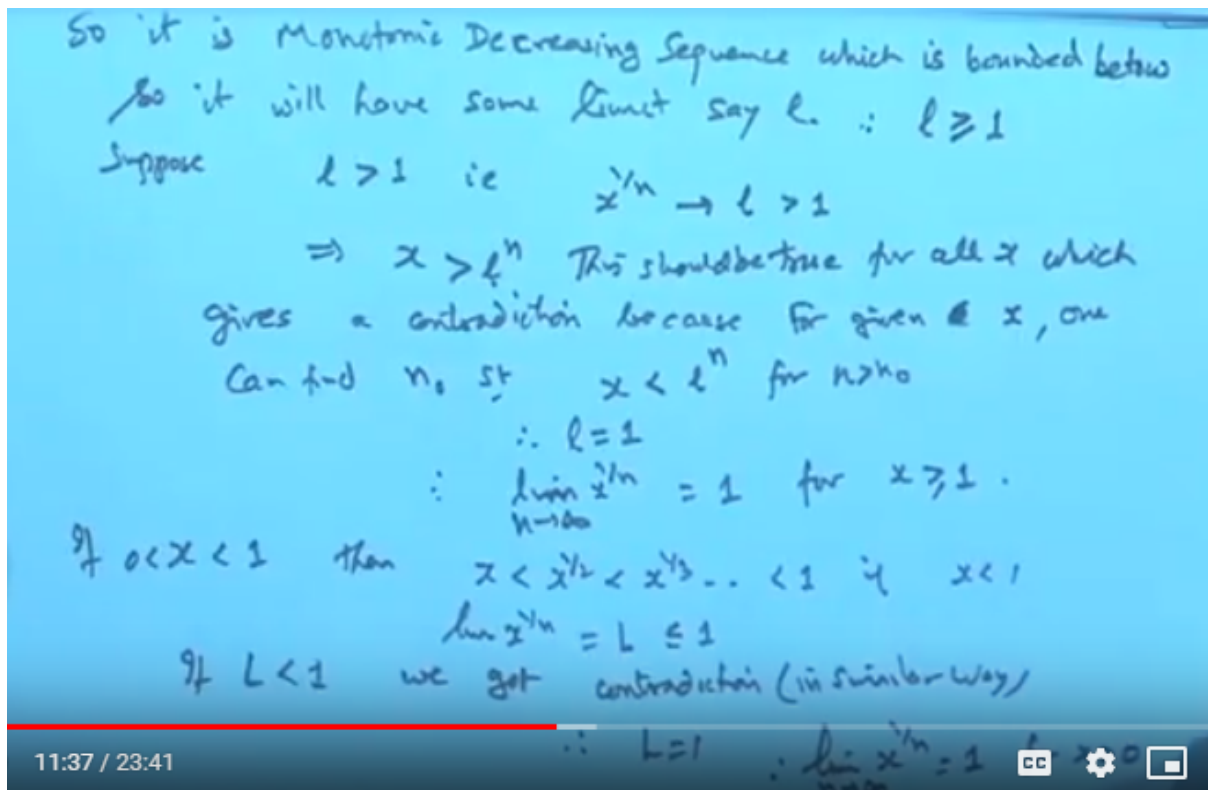 So it is Monotonic Decreasing Sequence which is bounded below
So it will have some limit say l. ∴ l ≥ 1
Suppose l > 1 ie x^1/n → l > 1
⇒ x > l^n This should be true for all x which
gives a contradiction because for given x, one
Can find n₀ st x < l^n for n > n₀
∴ l = 1
∴ lim x^1/n = 1 for x ≥ 1.
n→∞
If 0 < x < 1 then x < x^1/2 < x^1/3 .. < 1 if x < 1
lim x^1/n = L ≤ 1
If L < 1 we get contradiction (in similar way)
∴ L = 1 ∴ lim x^1/n = 1 x > 0
11:37 / 23:41
CC